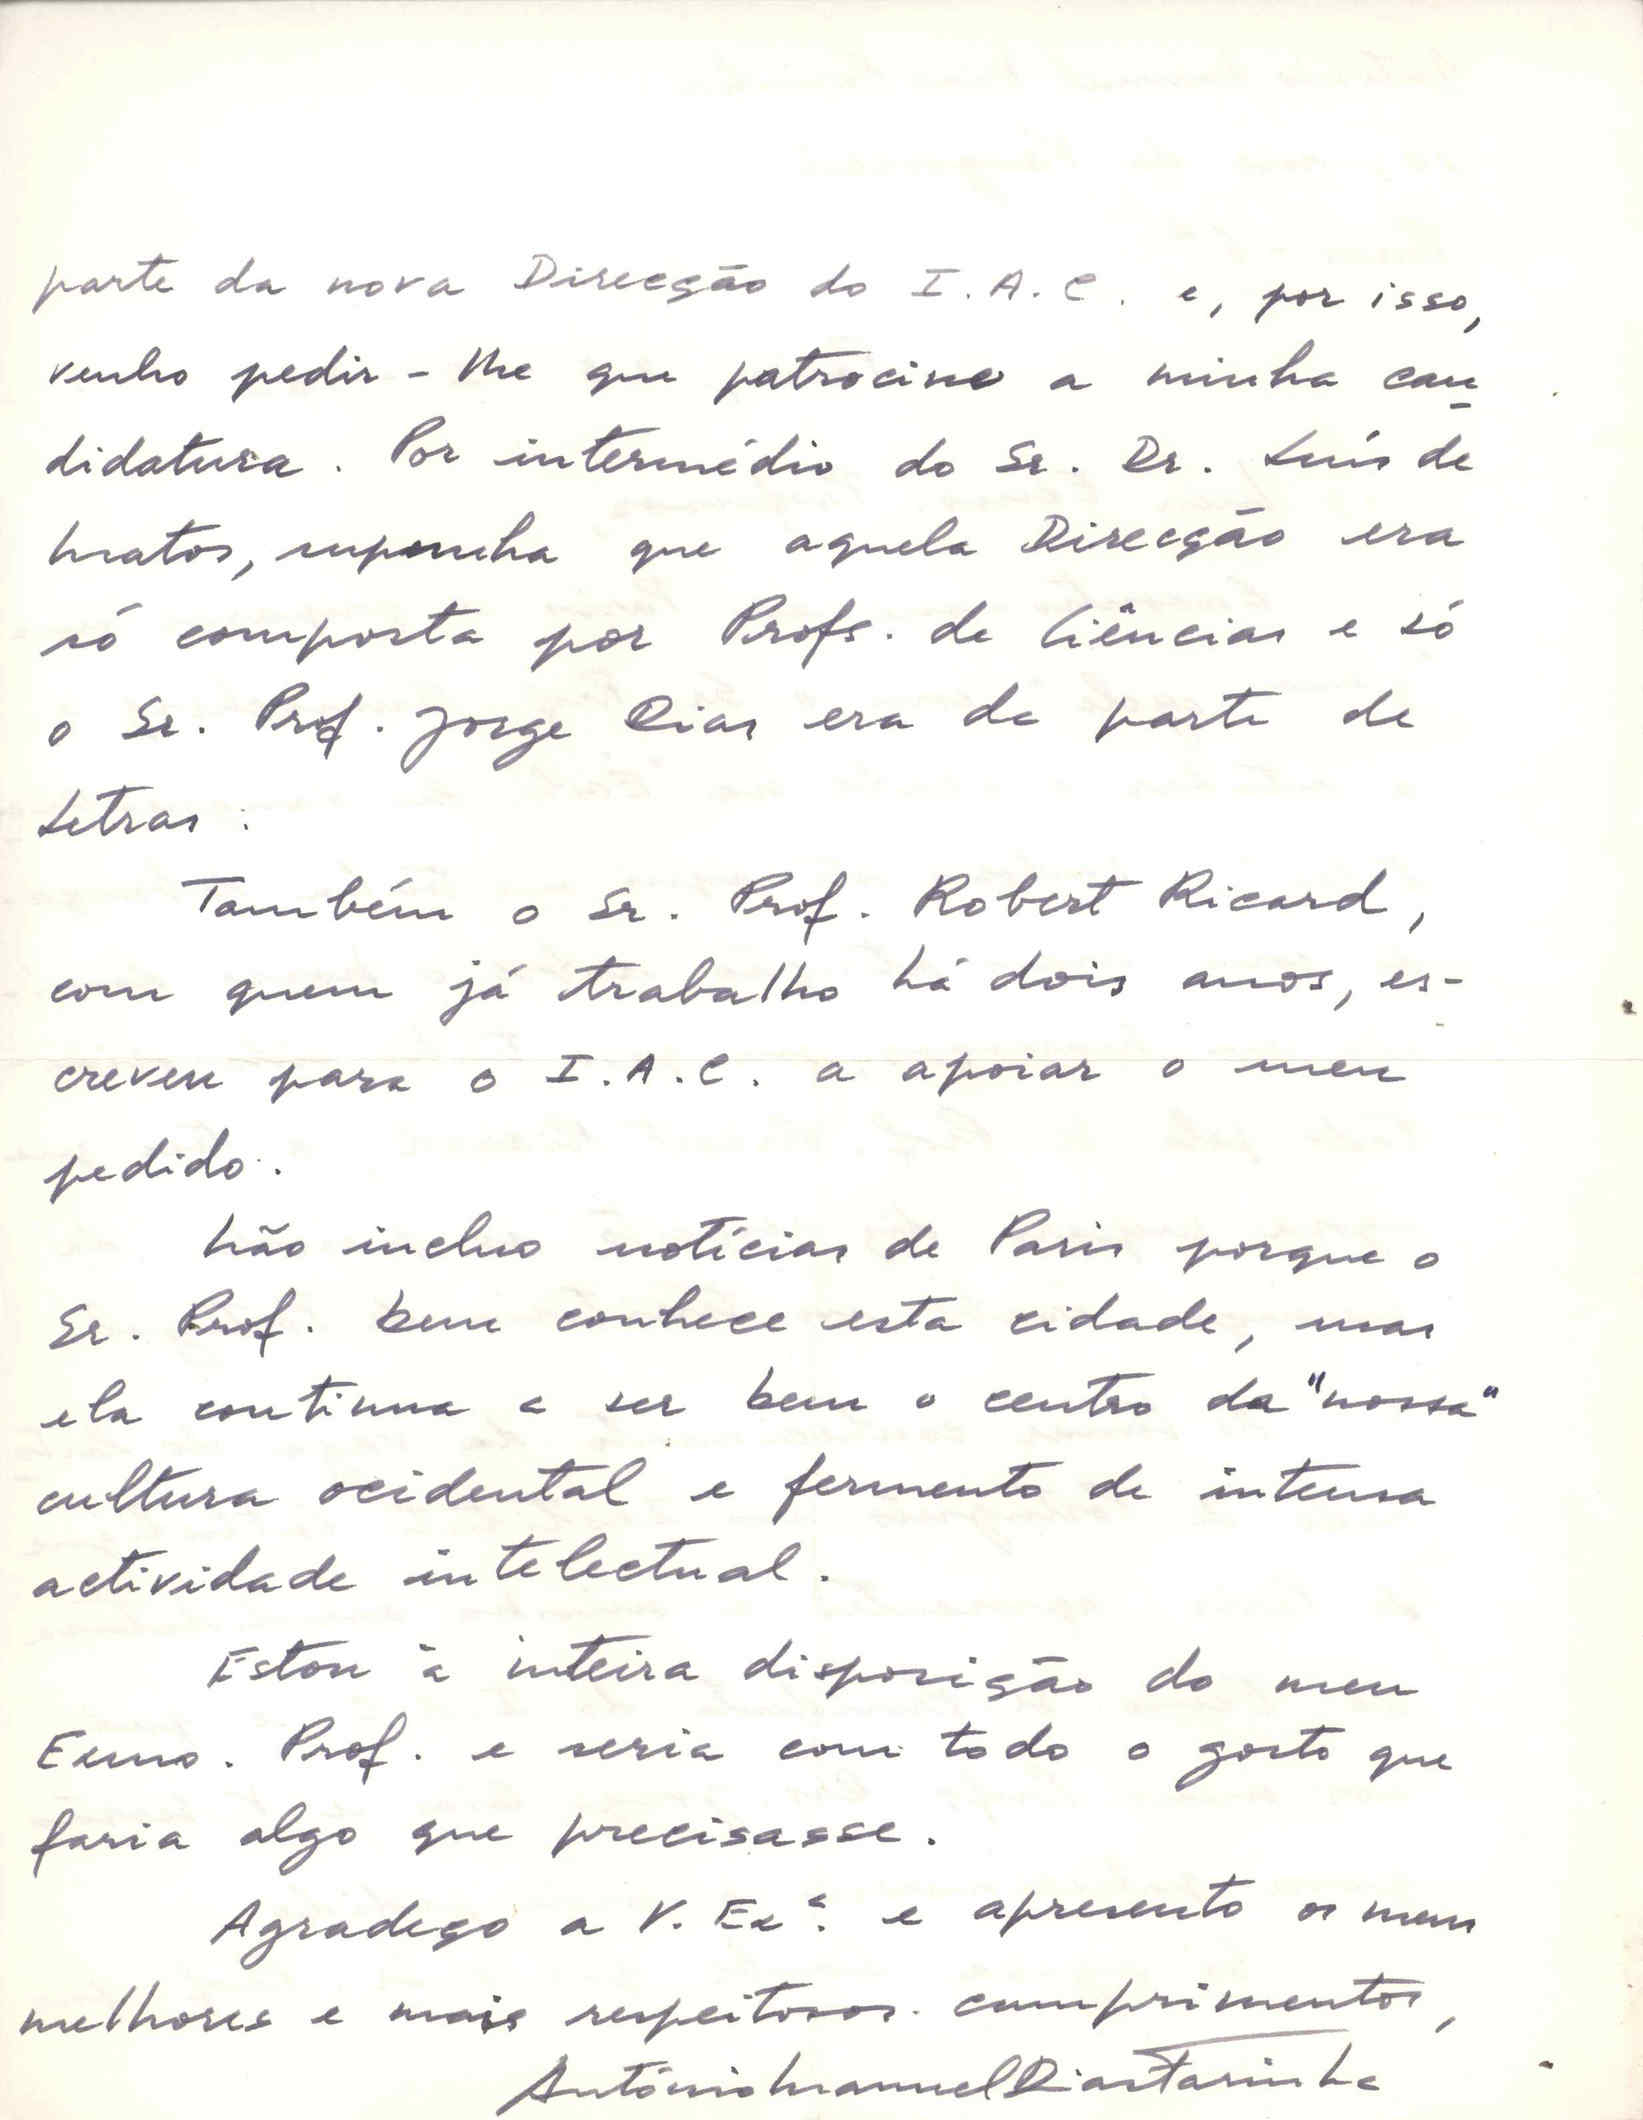 parte da nova Direcção do I.A.C. e, por isso,
venho pedir-lhe que patrocine a minha can-
didatura. Por intermédio do Sr. Dr. Luís de
Matos, supunha que aquela Direcção era
só composta por Profs. de Ciências e só
o Sr. Prof. Jorge Dias era da parte de
Letras.
Também o Sr. Prof. Robert Ricard,
com quem já trabalho há dois anos, es-
creveu para o I.A.C. a apoiar o meu
pedido.
Não incluo notícias de Paris porque o
Sr. Prof. bem conhece esta cidade, mas
ela continua a ser bem o centro da "nossa"
cultura ocidental e fermento de intensa
actividade intelectual.
Estou à inteira disposição do meu
Exmo. Prof. e seria com todo o gosto que
faria algo que precisasse.
Agradeço a V. Exª. e apresento os meus
melhores e mais respeitosos cumprimentos,
António Manuel Dias Farinha